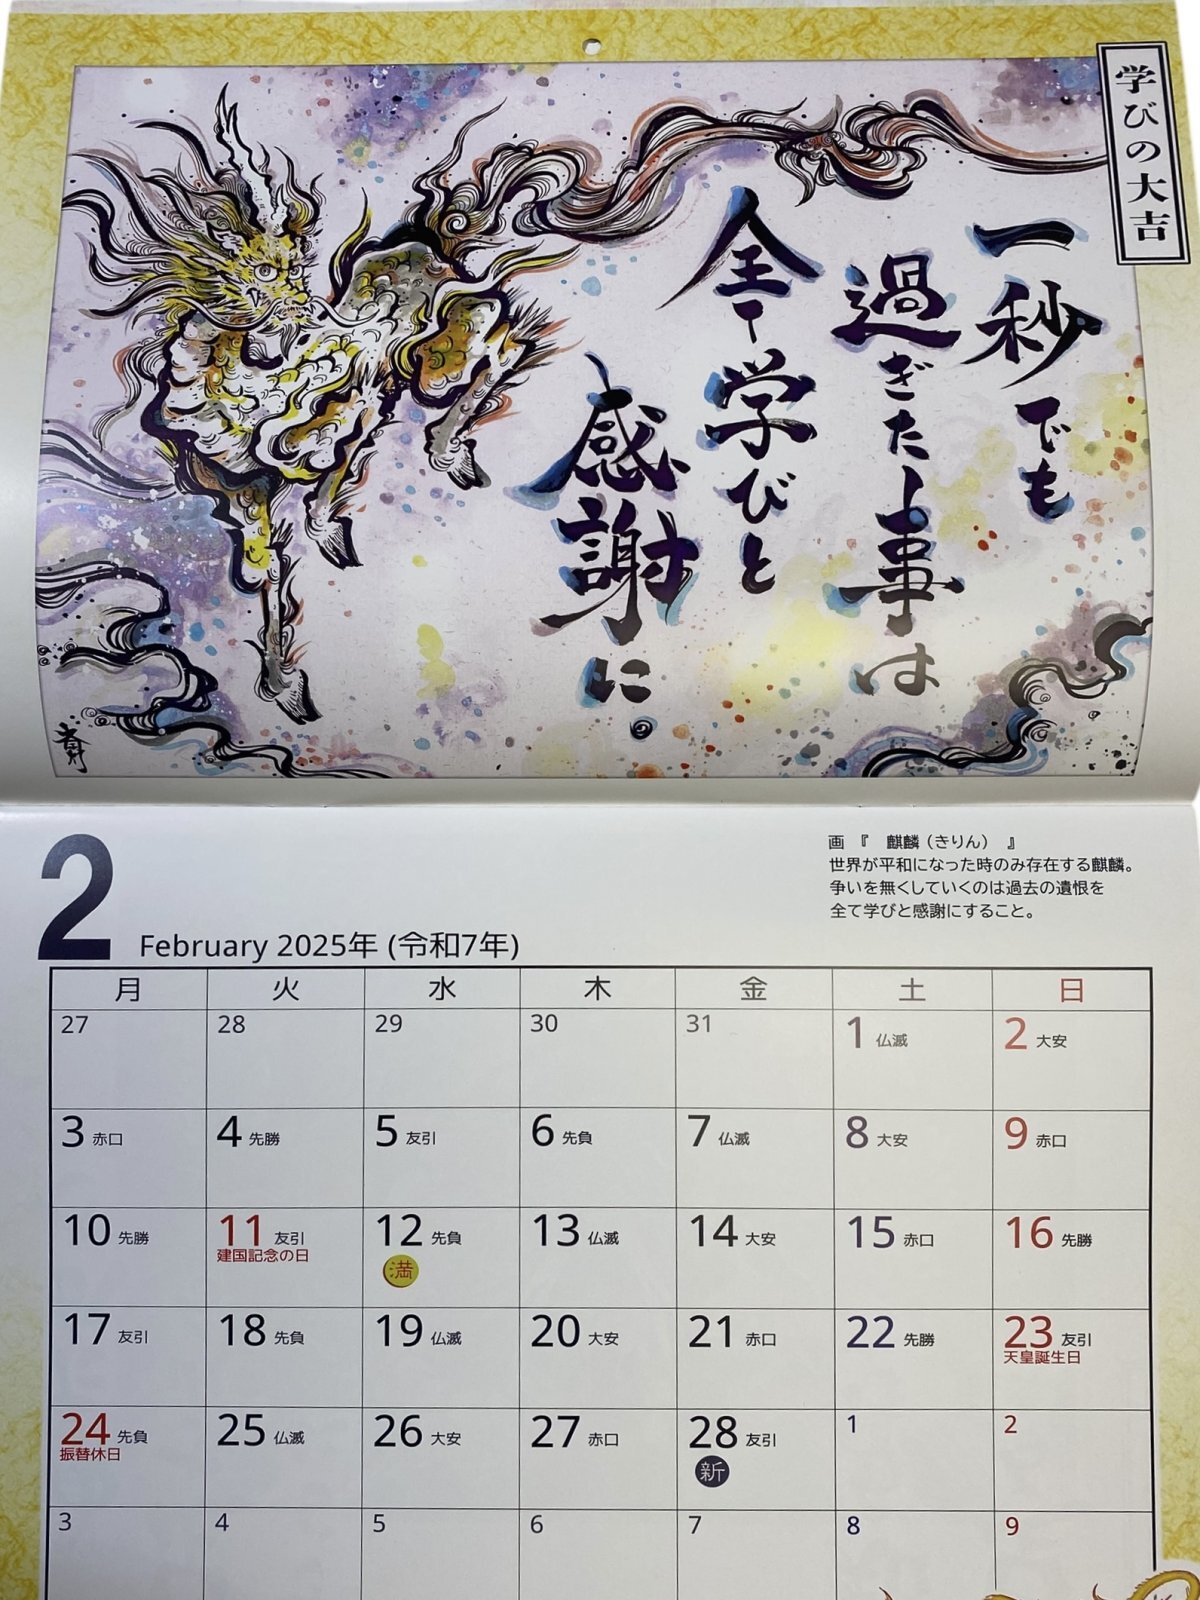 学びの大吉
一秒でも
過ぎた事は
全て学びと
感謝に。
2
February 2025年 (令和7年)
画 『 麒麟（きりん） 』
世界が平和になった時のみ存在する麒麟。
争いを無くしていくのは過去の遺恨を
全て学びと感謝にすること。
月 火 水 木 金 土 日
27 28 29 30 31 1 仏滅 2 大安
3 赤口 4 先勝 5 友引 6 先負 7 仏滅 8 大安 9 赤口
10 先勝 11 友引 12 先負 13 仏滅 14 大安 15 赤口 16 先勝
建国記念の日
満
17 友引 18 先負 19 仏滅 20 大安 21 赤口 22 先勝 23 友引
天皇誕生日
24 先負 25 仏滅 26 大安 27 赤口 28 友引 1 2
振替休日
新
3 4 5 6 7 8 9